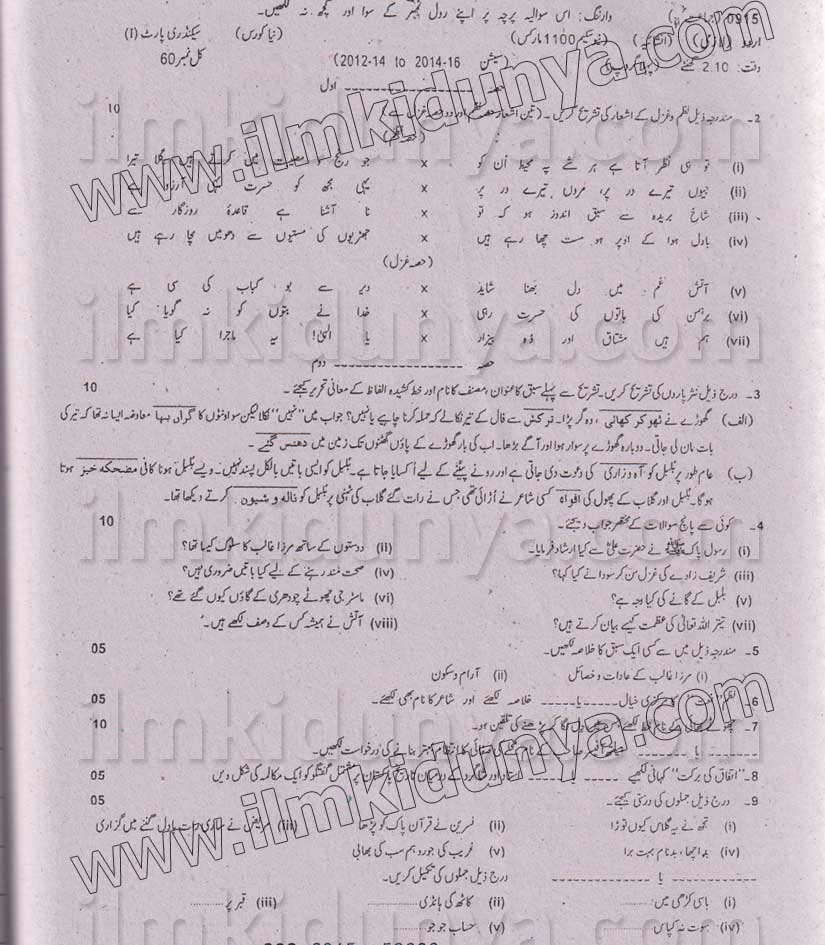 0915 وارننگ: اس سوالیہ پرچہ پر اپنے رول نمبر کے سوا اور کچھ نہ لکھیں۔
اردو (لازمی) (انشائیہ) (نیو سکیم 1100 مارکس) (نیا کورس) سیکنڈری پارٹ (I)
وقت: 2.10 گھنٹے (پہلا گروپ) (سیشن 2012-14 to 2014-16) کل نمبر 60
حصہ اول
2۔ مندرجہ ذیل نظم و غزل کے اشعار کی تشریح کریں۔ (تین اشعار حصہ نظم اور دو حصہ غزل سے) 10
(حصہ نظم)
(i) تو ہی نظر آتا ہے ہر شے پہ محیط اُن کو x جو رنج و مصیبت میں کرتے ہیں گلا تیرا
(ii) جیوں تیرے در پر، مروں تیرے در پر x یہی مجھ کو حسرت یہی آرزو ہے
(iii) شاخ بریدہ سے سبق اندوز ہو کہ تو x نا آشنا ہے قاعدۂ روزگار سے
(iv) بادل ہوا کے اوپر ہو مست چھا رہے ہیں x جھڑیوں کی مستیوں سے دھومیں مچا رہے ہیں
(حصہ غزل)
(v) آتش غم میں دل بھنا شاید x دیر سے بو کباب کی سی ہے
(vi) برہمن کی باتوں کی حسرت رہی x خدا نے بتوں کو نہ گویا کیا
(vii) ہم ہیں مشتاق اور وُہ بیزار x یا الٰہی! یہ ماجرا کیا ہے
حصہ دوم
3۔ درج ذیل نثرپاروں کی تشریح کریں۔ تشریح سے پہلے سبق کا عنوان، مصنف کا نام اور خط کشیدہ الفاظ کے معانی تحریر کیجئے۔ 10
(الف) گھوڑے نے ٹھوکر کھائی، وہ گر پڑا۔ ترکش سے فال کے تیر نکالے کہ حملہ کرنا چاہیے یا نہیں؟ جواب میں "نہیں" نکلا لیکن سو اونٹوں کا گراں بہا معاوضہ ایسا نہ تھا کہ تیر کی
بات مان لی جاتی۔ دوبارہ گھوڑے پر سوار ہوا اور آگے بڑھا۔ اب کی بار گھوڑے کے پاؤں گھٹنوں تک زمین میں دھنس گئے۔
(ب) عام طور پر بلبل کو آہ و زاری کی دعوت دی جاتی ہے اور رونے پیٹنے کے لیے اُکسایا جاتا ہے۔ بلبل کو ایسی باتیں بالکل پسند نہیں۔ ویسے بلبل ہونا کافی مضحکہ خیز ہوتا
ہوگا۔ بلبل اور گلاب کے پھول کی افواہ کسی شاعر نے اُڑائی تھی جس نے رات گئے گلاب کی ٹہنی پر بلبل کو نالہ و شیون کرتے دیکھا تھا۔
4۔ کوئی سے پانچ سوالات کے مختصر جواب دیجئے۔ 10
(i) رسول پاک ﷺ نے حضرت علیؓ سے کیا ارشاد فرمایا۔ (ii) دوستوں کے ساتھ مرزا غالب کا سلوک کیسا تھا؟
(iii) شریف زادے کی غزل سن کر سودا نے کیا کہا؟ (iv) صحت مند رہنے کے لیے کیا باتیں ضروری ہیں؟
(v) بلبل کے گانے کی کیا وجہ ہے؟ (vi) ماسٹر جی چھوٹے چودھری کے گاؤں کیوں گئے تھے؟
(vii) تیتر اللہ تعالیٰ کی عظمت کیسے بیان کرتے ہیں؟ (viii) آتش نے ہمیشہ کس کے وصف لکھے ہیں۔
5۔ مندرجہ ذیل میں سے کسی ایک سبق کا خلاصہ لکھیں۔ 05
(i) مرزا غالب کے عادات و خصائل (ii) آرام و سکون
6۔ نظم کا مرکزی خیال ۔۔۔ یا ۔۔۔ خلاصہ لکھئے اور شاعر کا نام بھی لکھئے۔ 05
7۔ چھوٹے بھائی کے نام خط لکھئے جس میں دل لگا کر پڑھنے کی تلقین ہو۔ 10
یا کے نام محلے کی صفائی کا انتظام بہتر بنانے کی درخواست لکھیں۔
8۔ "اتفاق کی برکت" کہانی لکھیے ۔۔۔ یا ۔۔۔ استاد اور شاگرد کے درمیان تاریخ پاکستان پر مشتمل گفتگو کو ایک مکالمہ کی شکل دیں 05
9۔ درج ذیل جملوں کی درستی کیجئے۔ 05
(i) تجھ نے یہ گلاس کیوں توڑا (ii) نسرین نے قرآن پاک کو پڑھا (iii) مریض نے ساری رات بادل گننے میں گزاری
(iv) بد اچھا، بدنام بہت برا (v) غریب کی جورو ہم سب کی بھابی
یا درج ذیل جملوں کی تکمیل کریں۔
(i) باسی کڑھی میں ........ (ii) کاٹھ کی ہانڈی ........ (iii) قبر پر ........
(iv) سوت نہ کپاس ........ (v) حساب جو جو ........
www.ilmkidunya.com
ilmkidunya.com
www.ilmkidunya.com
ilmkidunya.com
ilmkidunya.com
ilmkidunya.com
www.ilmkidunya.com
ilmkidunya.com